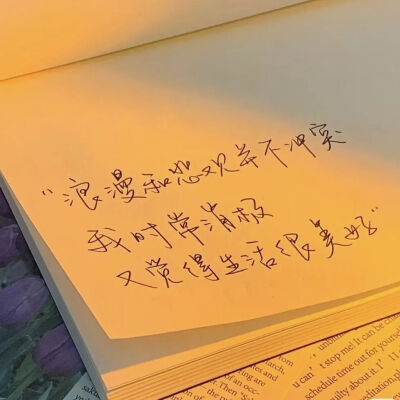 “浪漫和悲观并不冲突
我时常消极
又觉得生活很美好”
can't stop me! It can be
schedule time out for yourself